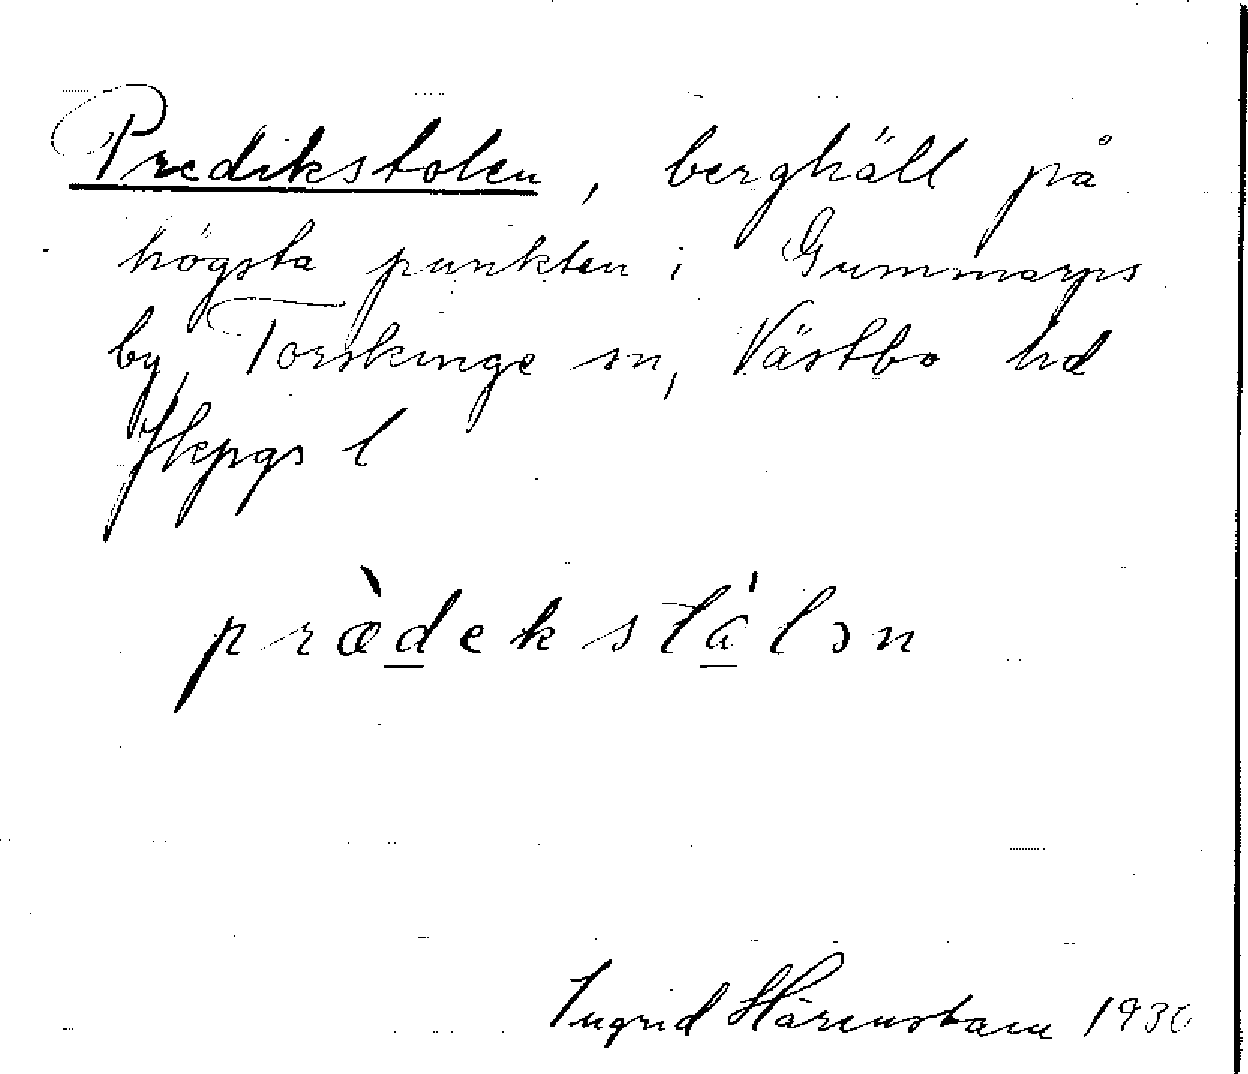 Predikstolen, berghäll på
högsta punkten i Gummarps
by, Torskinge sn, Västbo hd
Jkpgs l
præ̀dekstålən
Ingrid Härenstam 1930